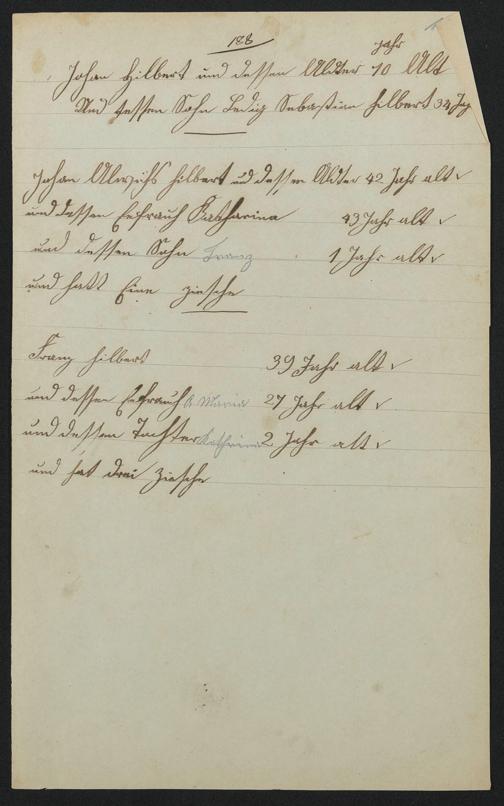 188
Jahr
Johan Hilbert und dessen Aldter 70 Alt
Und dessen Sohn Ledig Sebastian Hilbert 34 Ja
Johan Alwihs Hilbert ud dessen Aldter 42 Jahr alt
und dessen Eefrauh Katharina 43 Jahr alt
und dessen Sohn Franz 1 Jahr alt
und hatt Eine ziesche
Franz Hilbert 39 Jahr alt
und dessen Eefrauh A Maria 27 Jahr alt
und dessen Tochter Kathrina 2 Jahr alt
und hat drei ziesche